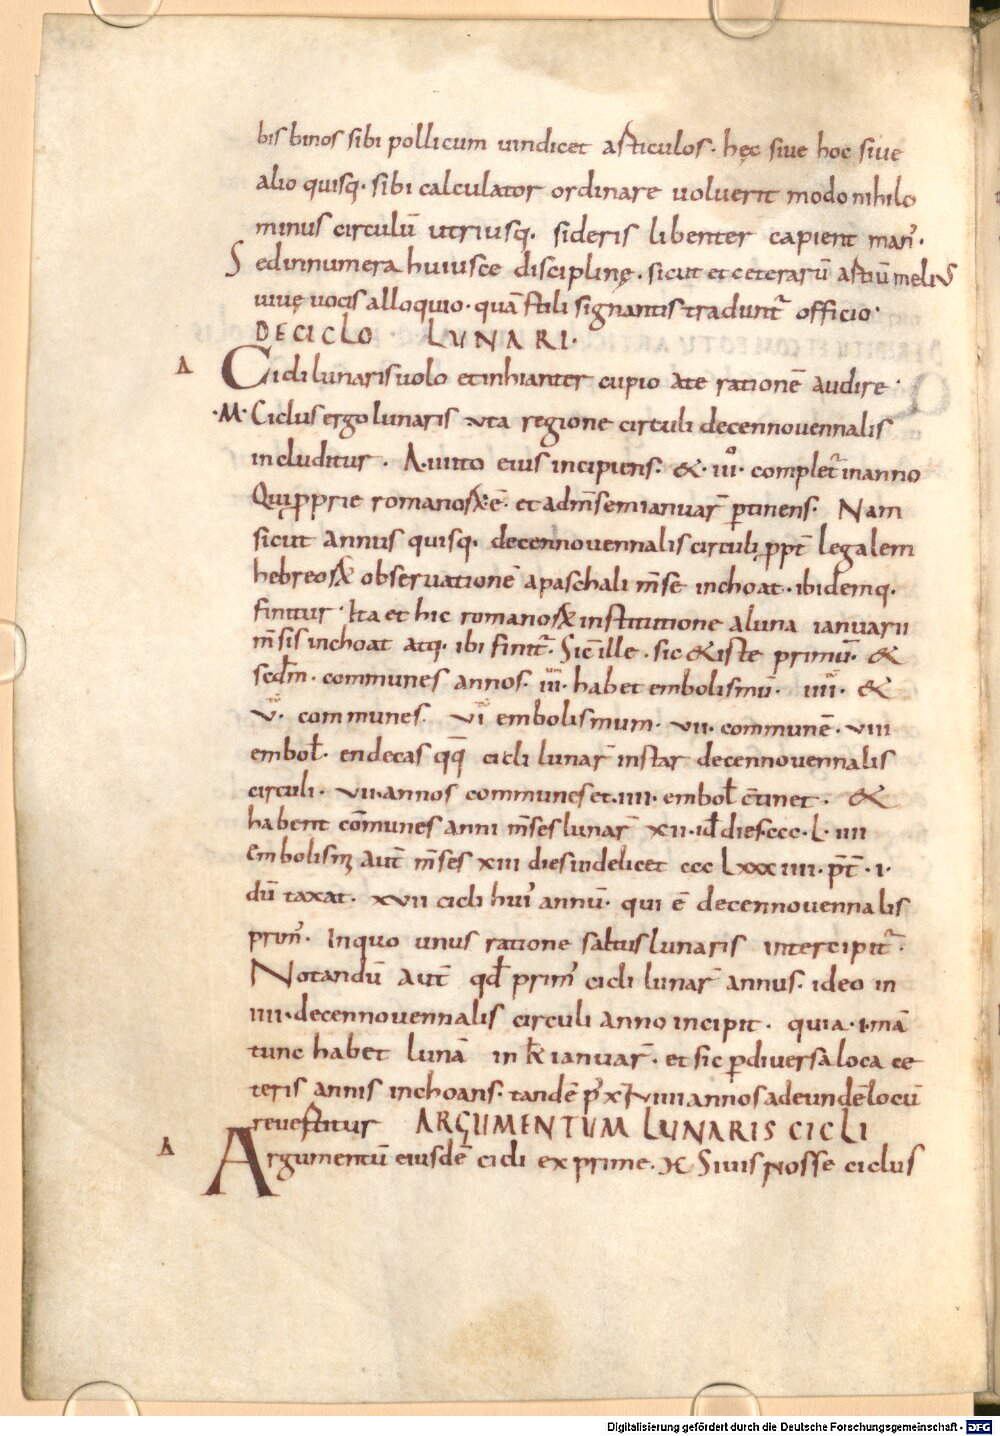 bis binos sibi pollicum uindicet articulos· hęc siue hoc siue
alio quisq· sibi calculator ordinare uoluerit modo nihilo
minus circulū utriusq· sideris libenter capient man᾿·
Sed innumera huiusce disciplinę· sicut et ceterarū artiū meliꝰ
uiuę uocis alloquio· quā stili signantis tradunt᾿ officio·
DE CICLO LUNARI·
Δ Cicli lunaris uolo et inhianter cupio a te rationē audire·
·M· Ciclus ergo lunaris uta regione circuli decennouennalis
includitur· A·iiiito eius incipiens· &·iii᾿ complet᾿ in anno
Qui pprie romanoꝝ·ē· et ad m̄sem ianuar̄ ptinens· Nam
sicut annus quisq· decennouennalis circuli ppt̄ legalem
hebreoꝝ obseruationē a paschali m̄se inchoat· ibidemq·
finitur· Ita et hic romanoꝝ institutione a luna ianuarii
m̄sis inchoat atq· ibi finit᾿· Sic ille· sic & iste primū· &
scd̄m· communes annos· iii· habet embolismū· iiii· &
v· communes· vi embolismum· vii· communē· viii
embol̄· endecas qq̄ cicli lunar̄ instar decennouennalis
circuli· vii·annos communes et·iiii· embol̄ c̄tinet· &
habent cōmunes anni m̄ses lunar̄ xii·id̄ dies·ccc·L·iiii
Embolism̄ aut̄ m̄ses xiii dies uidelicet ccc Lxxxiiii·p̄t̄·i·
dū taxat· xvii cicli hui᾿ annū· qui ē decennouennalis
prim᾿· In quo unus ratione saltus lunaris intercipit᾿·
Notandū aut̄ qd̄ prim᾿ cicli lunar̄ annus· ideo in
iiii·decennouennalis circuli anno incipit· quia·i·mā
tunc habet lunā in kl̄ ianuar̄· et sic p diuersa loca ce
teris annis inchoans· tandē p᾿ xviiii annos ad eundē locū
reuestitur ARGUMENTUM LUNARIS CICLI
Δ Argumentū eiusdē cicli exprime· M Si uis nosse ciclus
Digitalisierung gefördert durch die Deutsche Forschungsgemeinschaft - DFG